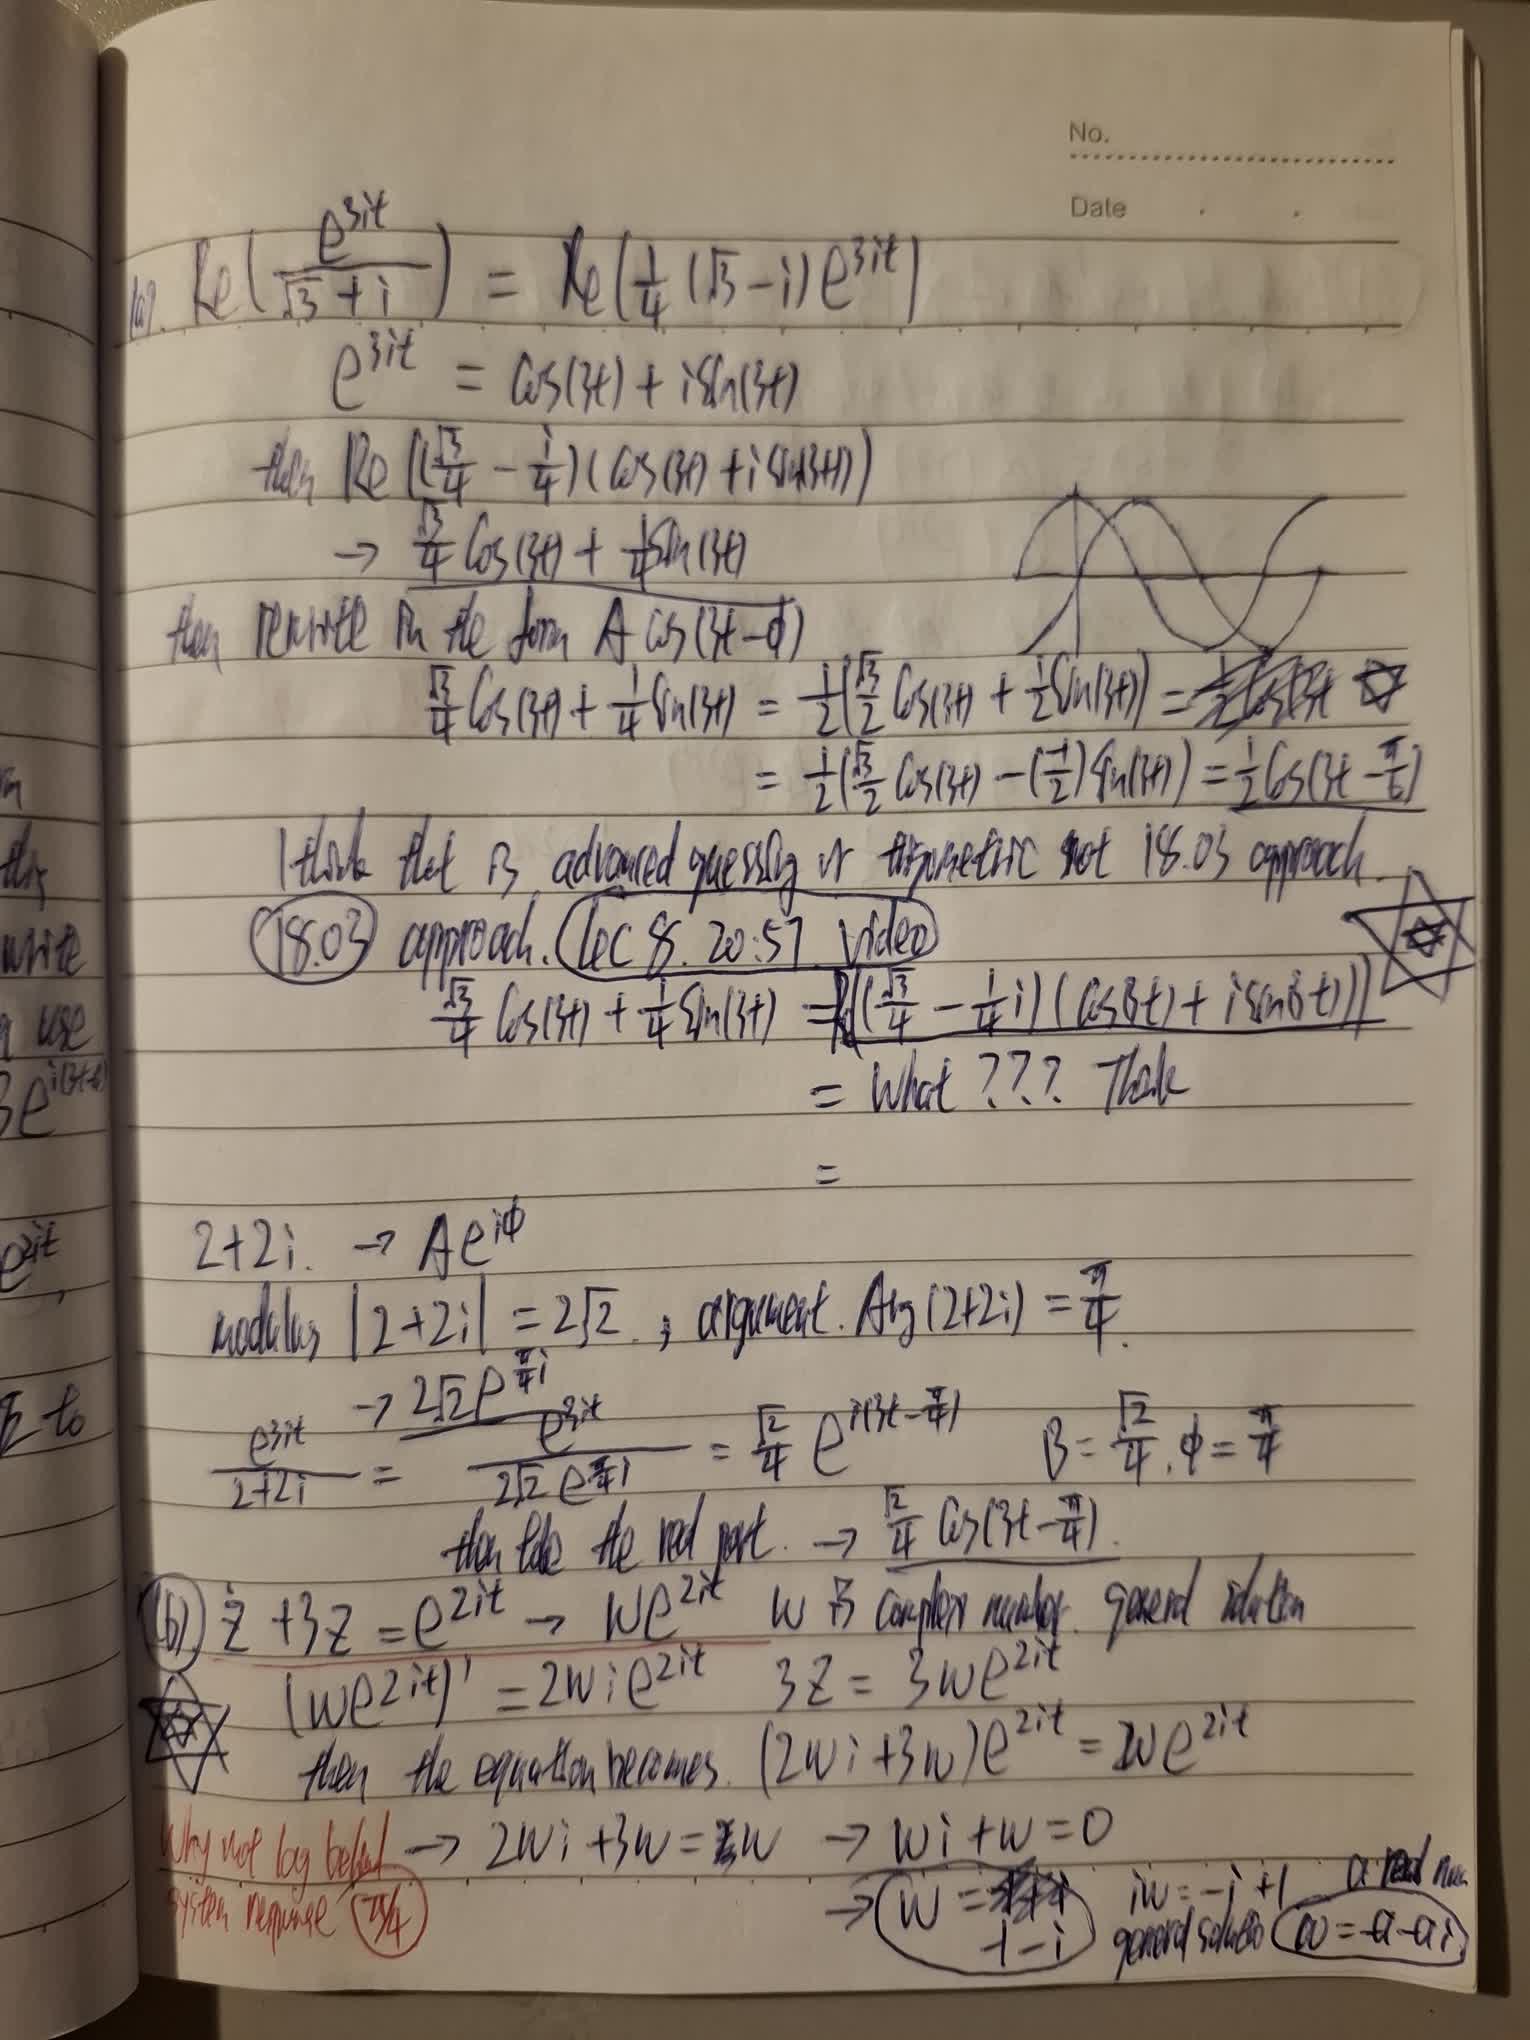 No.
Date
(a). Re(e^{3it}/(√3+i)) = Re(1/4 (√3-i)e^{3it})
e^{3it} = Cos(3t) + iSin(3t)
then Re((√3/4 - i/4)(Cos(3t) + iSin(3t)))
→ √3/4 Cos(3t) + 1/4 Sin(3t)
then rewrite in the form A Cos(3t-φ)
√3/4 Cos(3t) + 1/4 Sin(3t) = 1/2(√3/2 Cos(3t) + 1/2 Sin(3t)) =
= 1/2(√3/2 Cos(3t) - (-1/2)Sin(3t)) = 1/2 Cos(3t - π/6)
I think that is advanced guessing or not 18.03 approach.
18.03 approach. Lec 8. 20:57 video
√3/4 Cos(3t) + 1/4 Sin(3t) = Re((√3/4 - 1/4 i)(Cos(3t) + iSin(3t)))
= What ??? Think
=
2+2i. → Ae^{iφ}
modulus |2+2i| = 2√2. , argument. Arg(2+2i) = π/4.
→ 2√2e^{π/4 i}
e^{3it}/(2+2i) = e^{3it}/(2√2 e^{π/4 i}) = √2/4 e^{i(3t-π/4)} B = √2/4, φ = π/4
then take the real part. → √2/4 Cos(3t-π/4).
(b). ż + 3z = e^{2it} → we^{2it} w is complex number. general solution
(we^{2it})' = 2wie^{2it} 3z = 3we^{2it}
then the equation becomes. (2wi+3w)e^{2it} = 2we^{2it}
Why not lag behind → 2wi + 3w = w → wi + w = 0
system response
→ w = -1-i iw = -i+1 a real num
general solution w = -a-ai
this
write
use
3e^{i(3t-
e^{2it},
to